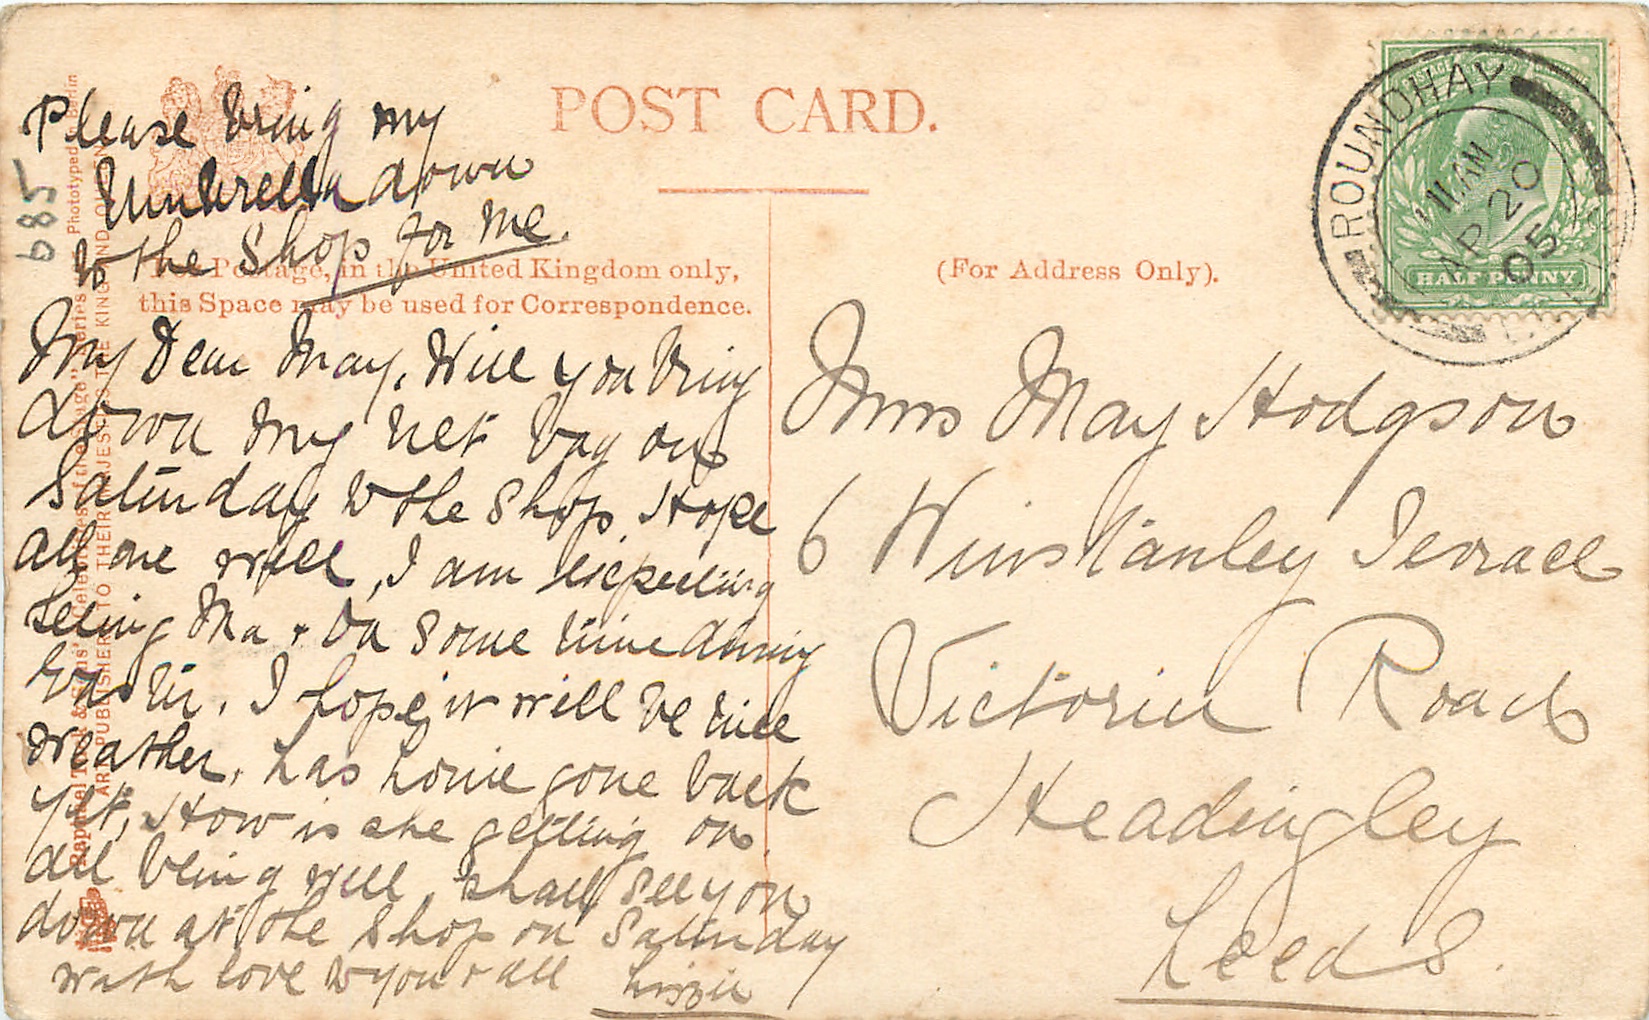 POST CARD.
Please bring my
Umbrella down
to the Shop for me.
For Postage, in the United Kingdom only,
this Space may be used for Correspondence.
(For Address Only).
My Dear May, Will you bring
down my net bag on
Saturday to the Shop Hope
all are well, I am expecting
seeing Ma + Da some time during
Easter, I hope it will be nice
weather, has home gone back
yet, How is she getting on
all being well, shall see you
down at the Shop on Saturday
with love to you + all Lizzie
Miss May Hodgson
6 Winstanley Terrace
Victoria Road
Headingley
Leeds.
ROUNDHAY
11 AM
AP 20
05
HALF PENNY
685
Raphael Tuck & Sons' "Celebrities of the Stage" Series Phototyped Berlin
ART PUBLISHERS TO THEIR MAJESTIES THE KING AND QUEEN